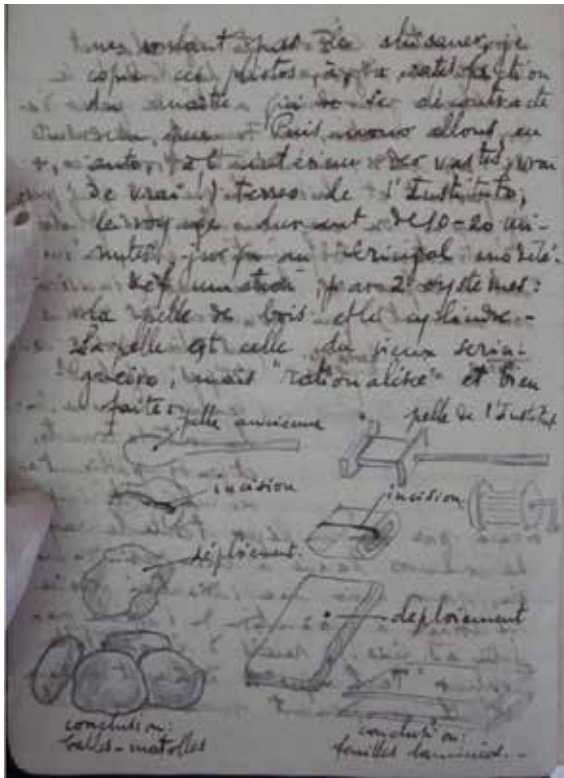 nes voulant pas
copie ces photos, à la satisfaction
du maître qui se décontracte
un peu. Puis, nous allons, en
auto, à l'intérieur des vastes (non
de vrai) terres de l'Instituto,
le voyage durant de 10-20 mi-
nutes jusqu'au seringal modèle.
par 2 systèmes:
la pelle de bois et le cylindre.-
La pelle est celle du vieux serin-
gueiro, mais "rationalisée" et bien
faite:
pelle ancienne
pelle de l'Institut
incision
incision
déploiement
déploiement
conclusion:
balles-
conclusion:
feuilles laminées.-